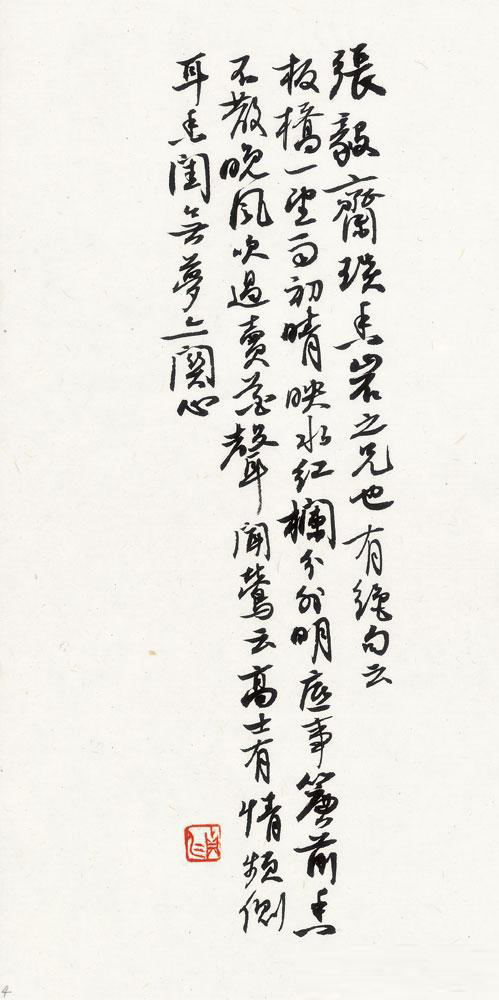 張毅齋香岩之兄也有絕句云
板橋一望雨初晴映水紅欄分外明底事簾前香
不散晚風吹過賣花聲聞鶯云高士有情頻側
耳香閨無夢亦關心
4